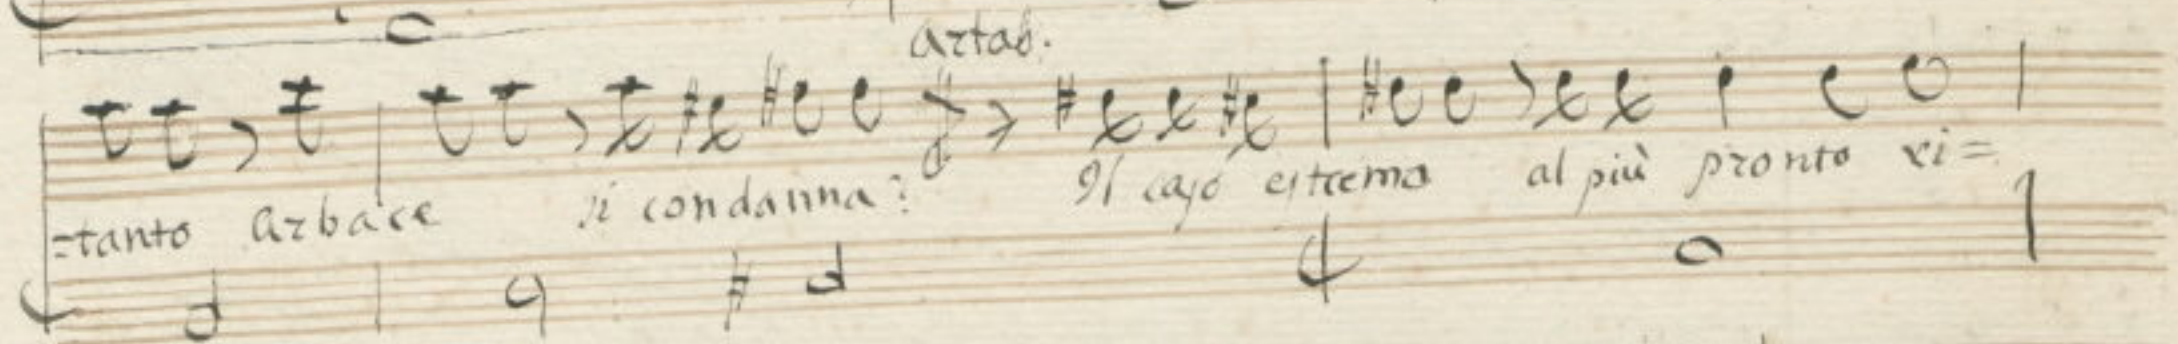 Artab.
=tanto Arbace si condanna? Il caso estremo al più pronto ri=